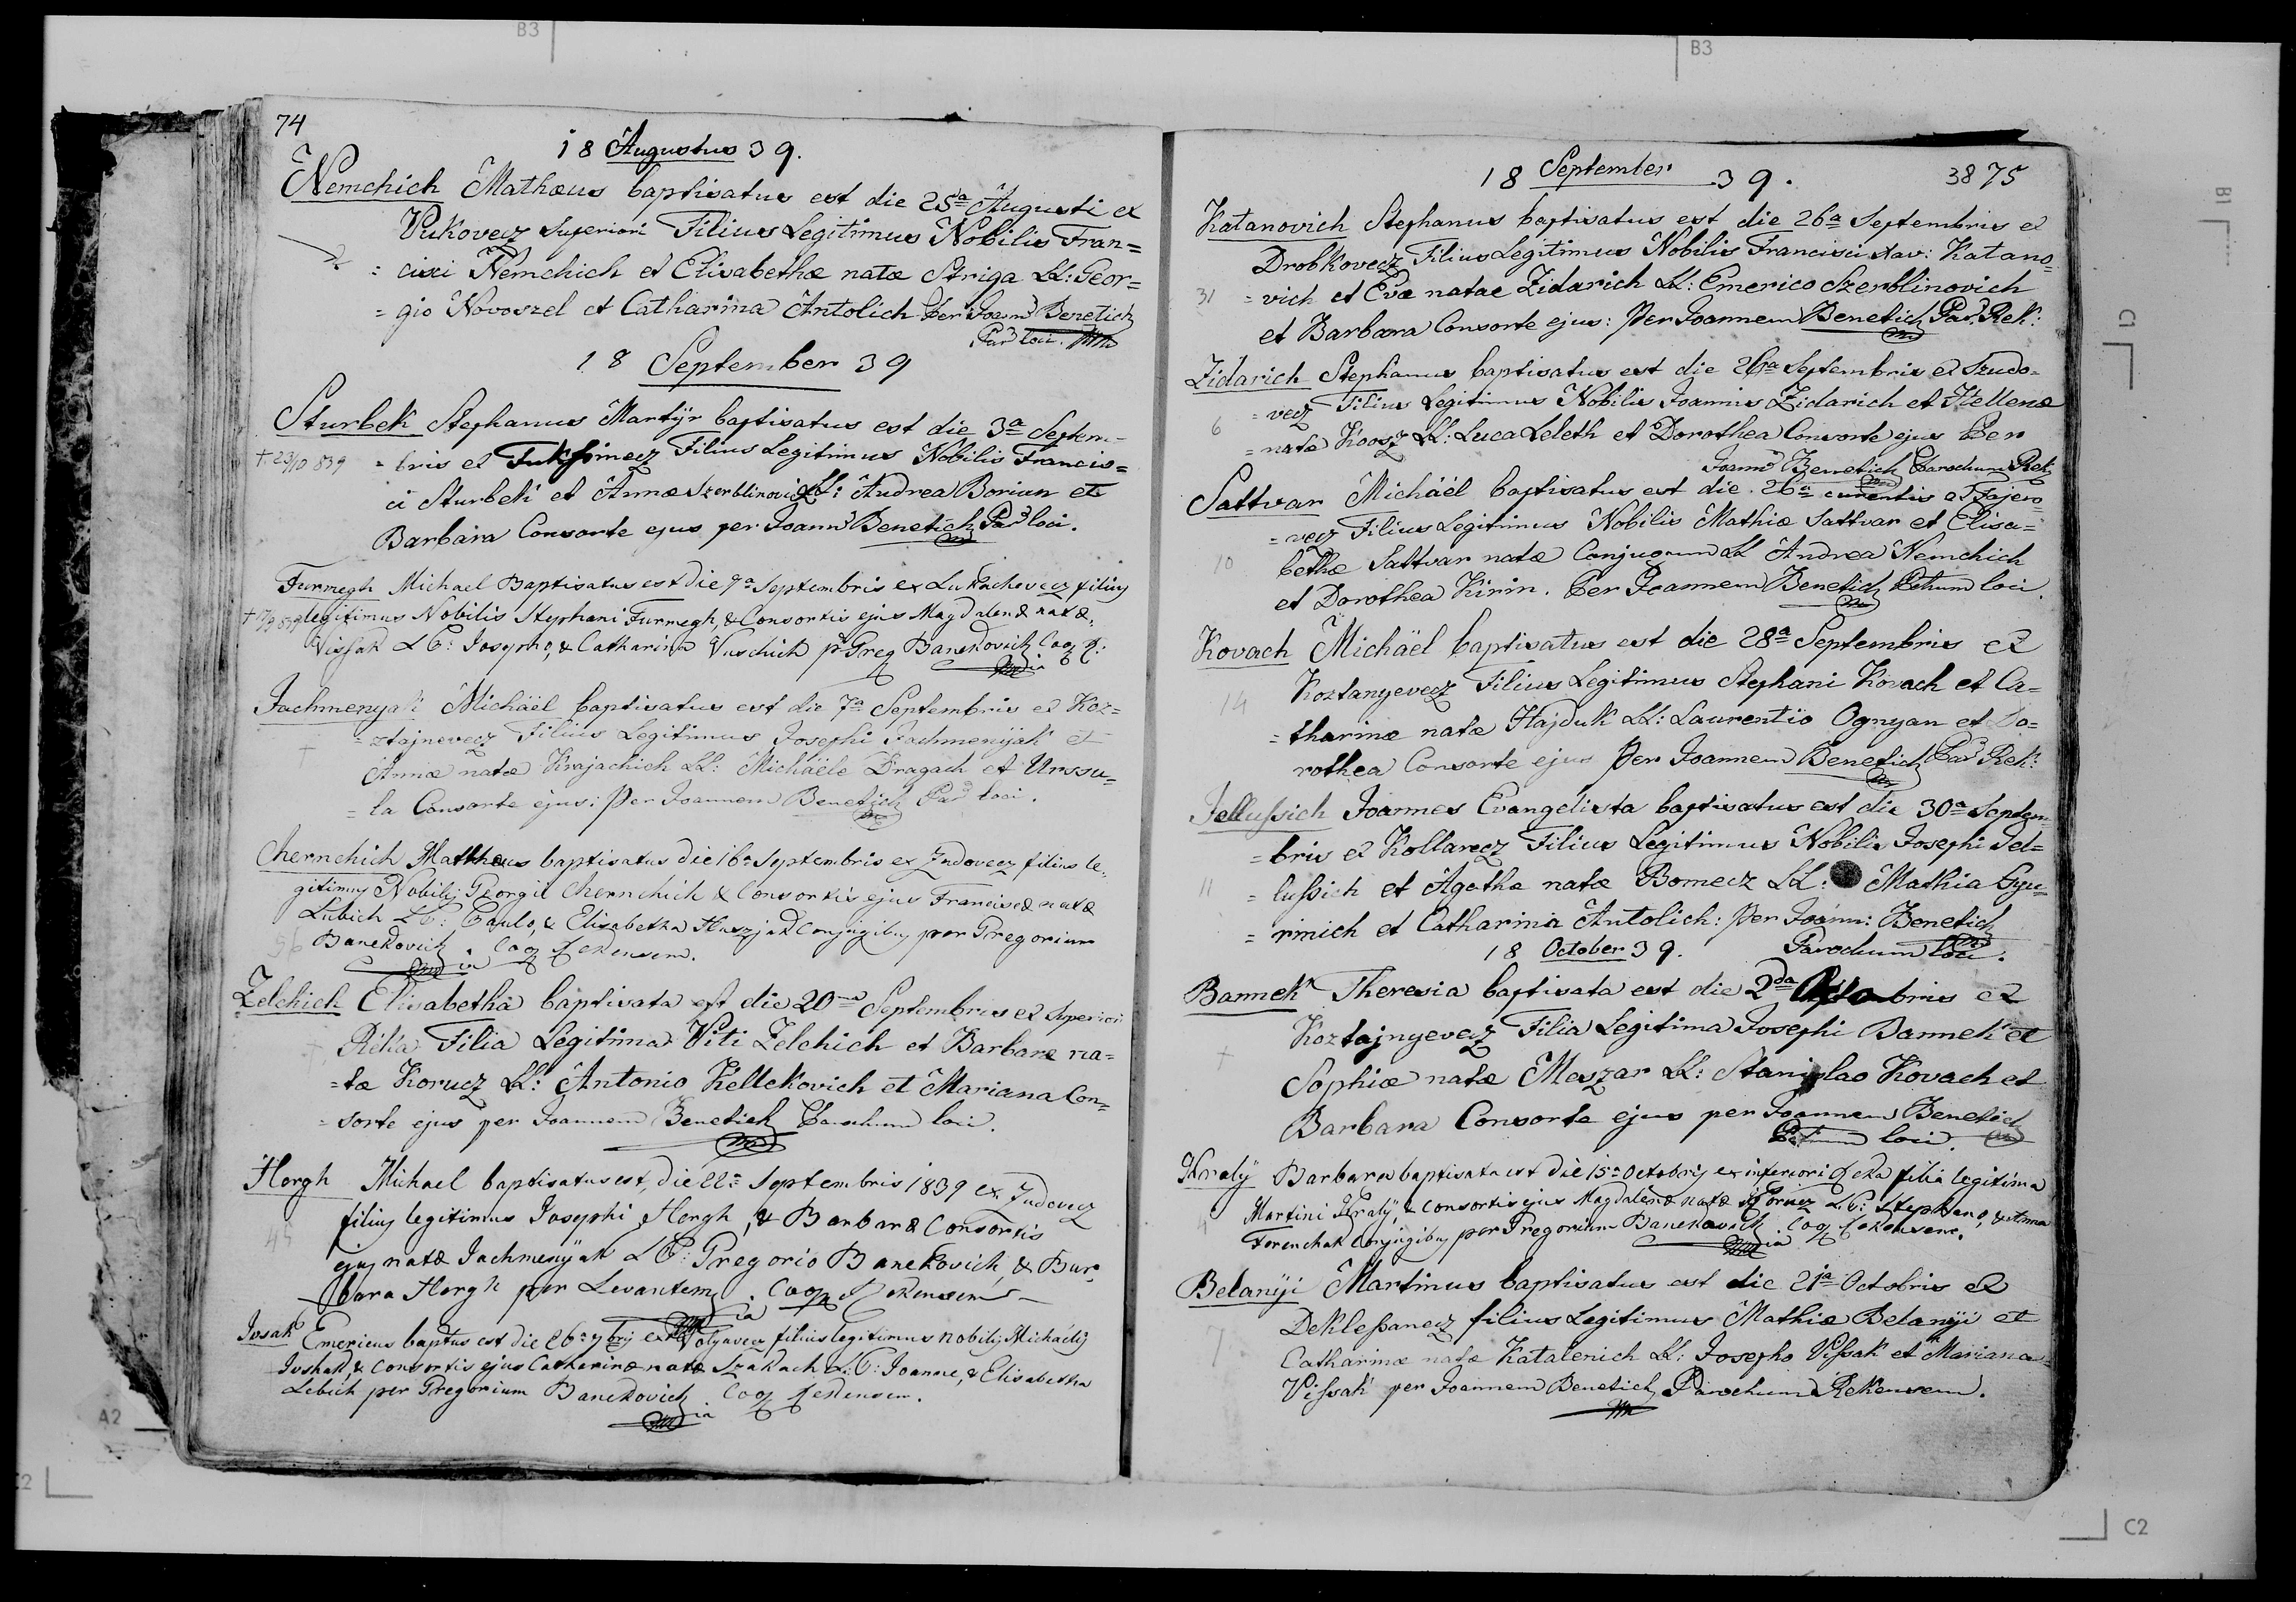 B3
B3
B1
C1
A2
C2
C2
74
18 Augustus 39.
Nemchich Mathæus baptisatus est die 25a Augusti ex
Vukovecz Superiori Filius Legitimus Nobilis Fran=
= cisci Nemchich et Elisabethæ natæ Striga LL: Geor=
= gio Novoszel et Catharina Antolich Per Joann Benetich
Par loci.
18 September 39
Sturbek Stephanus Martÿr baptisatus est die 3a Septem-
† 23/10 839 = bris ex Filius Legitimus Nobilis Francis=
ci Sturbek et Annæ Szerblinovich LL: Andrea Borian et
Barbara Consorte ejus per Joann Benetich Par loci.
Furmegh Michael Baptisatus est die 7a Septembris ex Lukachevecz filius
legitimus Nobilis Stephani Furmegh, & Consortis ejus Magdalenæ natæ
Vissak LC: Josepho, & Catharina Vuschich pr Greg Banekovich Coo R:
Jachmenyak Michäel baptisatus est die 7a Septembris ex Koz=
= ztajnevecz Filius Legitimus Josephi Jachmenÿak et
† Annæ natæ Krajachich LL: Michäele Dragach et Urssu=
= la Consorte ejus: Per Joannem Benetich Par loci.
Chernchich Matthæus baptisatus die 16a Septembris ex Zudovecz filius le-
gitimus Nobilis Georgii Chernchich & Consortis ejus Franciscæ natæ
Lubich LC: Paulo, & Elisabetha Huszjak Conjugibus per Gregorium
96 Banekovich Coo Rekensem.
Zelchich Elisabetha baptisata est die 20ma Septembris ex Superiori
† Réka Filia Legitima Viti Zelchich et Barbaræ na=
=tæ Korucz LL: Antonio Kellekovich et Mariana Con=
= sorte ejus per Joannem Benetich Parochum loci.
Hergh Michael baptisatus est, die 22a Septembris 1839 ex Zudovecz
filius legitimus Josephi Hergh, & Barbaræ Consortis
ejus natæ Jachmenÿak LC: Gregorio Banekovich, & Bar-
bara Hergh per Levantem Coo Rekensem
Jusak Emericus baptus est die 26a 7bris ex Polyavecz filius legitimus nobilis Michaëlis
Jushak, & Consortis ejus Catharinæ natæ Szakach LC: Joanne, & Elisabetha
Lebich per Gregorium Banekovich Coo Rekensem.
18 September 39. 38 75
Katanovich Stephanus baptisatus est die 26a Septembris ex
Drobkovecz Filius Legitimus Nobilis Francisci Xav: Katano=
31 = vich et Evæ natae Zidarich LL: Emerico Szerblinovich
et Barbara Consorte ejus: Per Joannem Benetich Par. Rek:
Zidarich Stephanus baptisatus est die 26a Septembris ex Szudo-
= vecz Filius Legitimus Nobilis Joannis Zidarich et Hellenæ
6 = natæ Koosz LL: Luca Leleth et Dorothea Consorte ejus Per
Joann Benetich Parochum Rek
Sattvar Michäël baptisatus est die 26a currentis ex Fajero
= vecz Filius Legitimus Nobilis Mathiæ Sattvar et Elisa=
10 bethæ Sattvar natæ Conjugum LL Andrea Nemchich
et Dorothea Kirin. Per Joannem Benetich Pchum loci.
Kovach Michäël baptisatus est die 28a Septembris ex
14 Koztanyevecz Filius Legitimus Stephani Kovach et Ca=
= tharinæ natæ Hajduk LL: Laurentio Ognyan et Do=
rothea Consorte ejus Per Joannem Benetich Par Rek:
Jellussich Joannes Evangelista baptisatus est die 30a Septem
= bris ex Kollarecz Filius Legitimus Nobilis Josephi Jel=
11 = lussich et Agathæ natæ Bomecz LL: Mathia Gyu=
= rinich et Catharina Antolich: per Joann: Benetich
Parochum loci.
18 October 39.
Bannek Theresia baptisata est die 2da Octobris ex
Koztajnyevecz Filia Legitima Josephi Bannek et
† Sophiæ natæ Meszar LL: Stanislao Kovach et
Barbara Consorte ejus per Joannem Benetich
Pchum loci
Kralÿ Barbara baptisata est die 15a Octobris ex inferiori Reka filia legitima
Martini Kralÿ, & Consortis ejus Magdalenæ natæ Korucz LC: Stephano, & Anna
4 Ferenchak Conjugibus per Gregorium Banekovich Coo Rekensem.
Belanÿi Martinus baptisatus est die 21a Octobris ex
Deklessanecz filius Legitimus Mathiæ Belanÿi et
7 Catharinæ natæ Katalenich LL: Josepho Vissak et Mariana
Vissak per Joannem Benetich Parochum Rekensem.